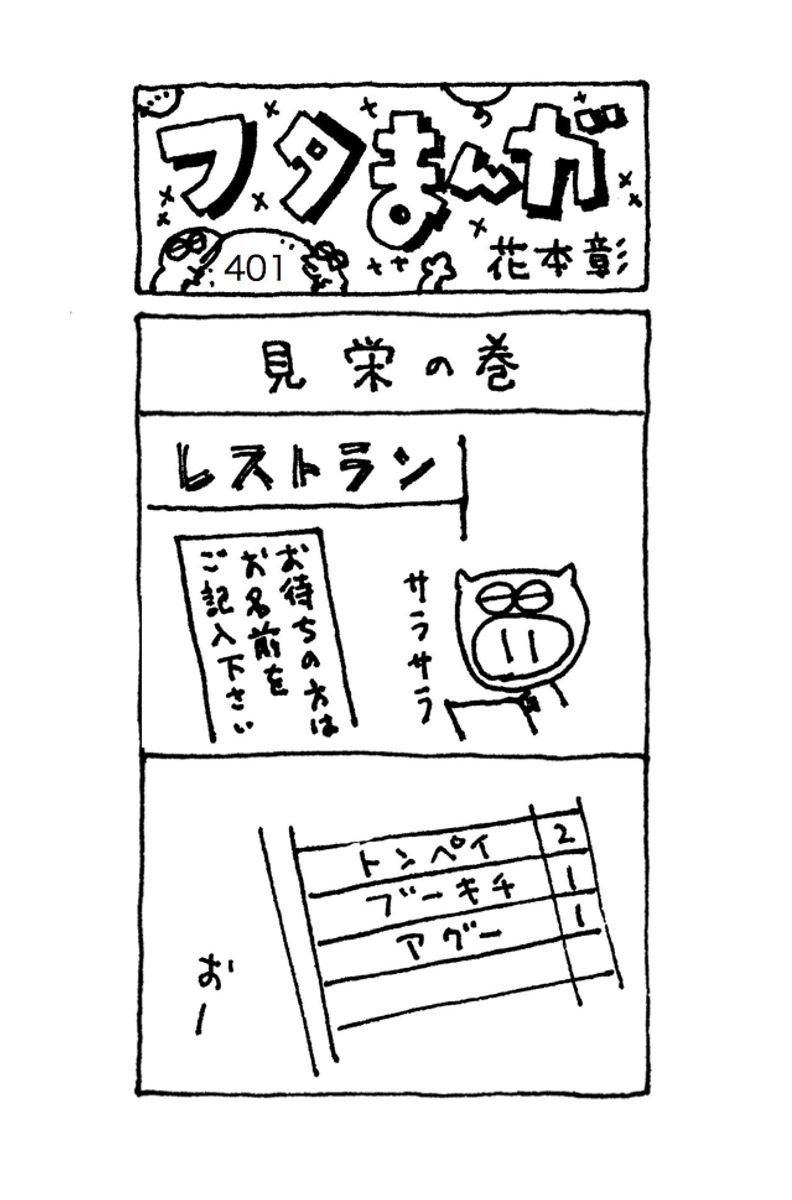 フタまんが
401
花本彰
見栄の巻
レストラン
お待ちの方は
お名前を
ご記入下さい
サラサラ
トンペイ 2
ブーキチ 1
アグー 1
おー